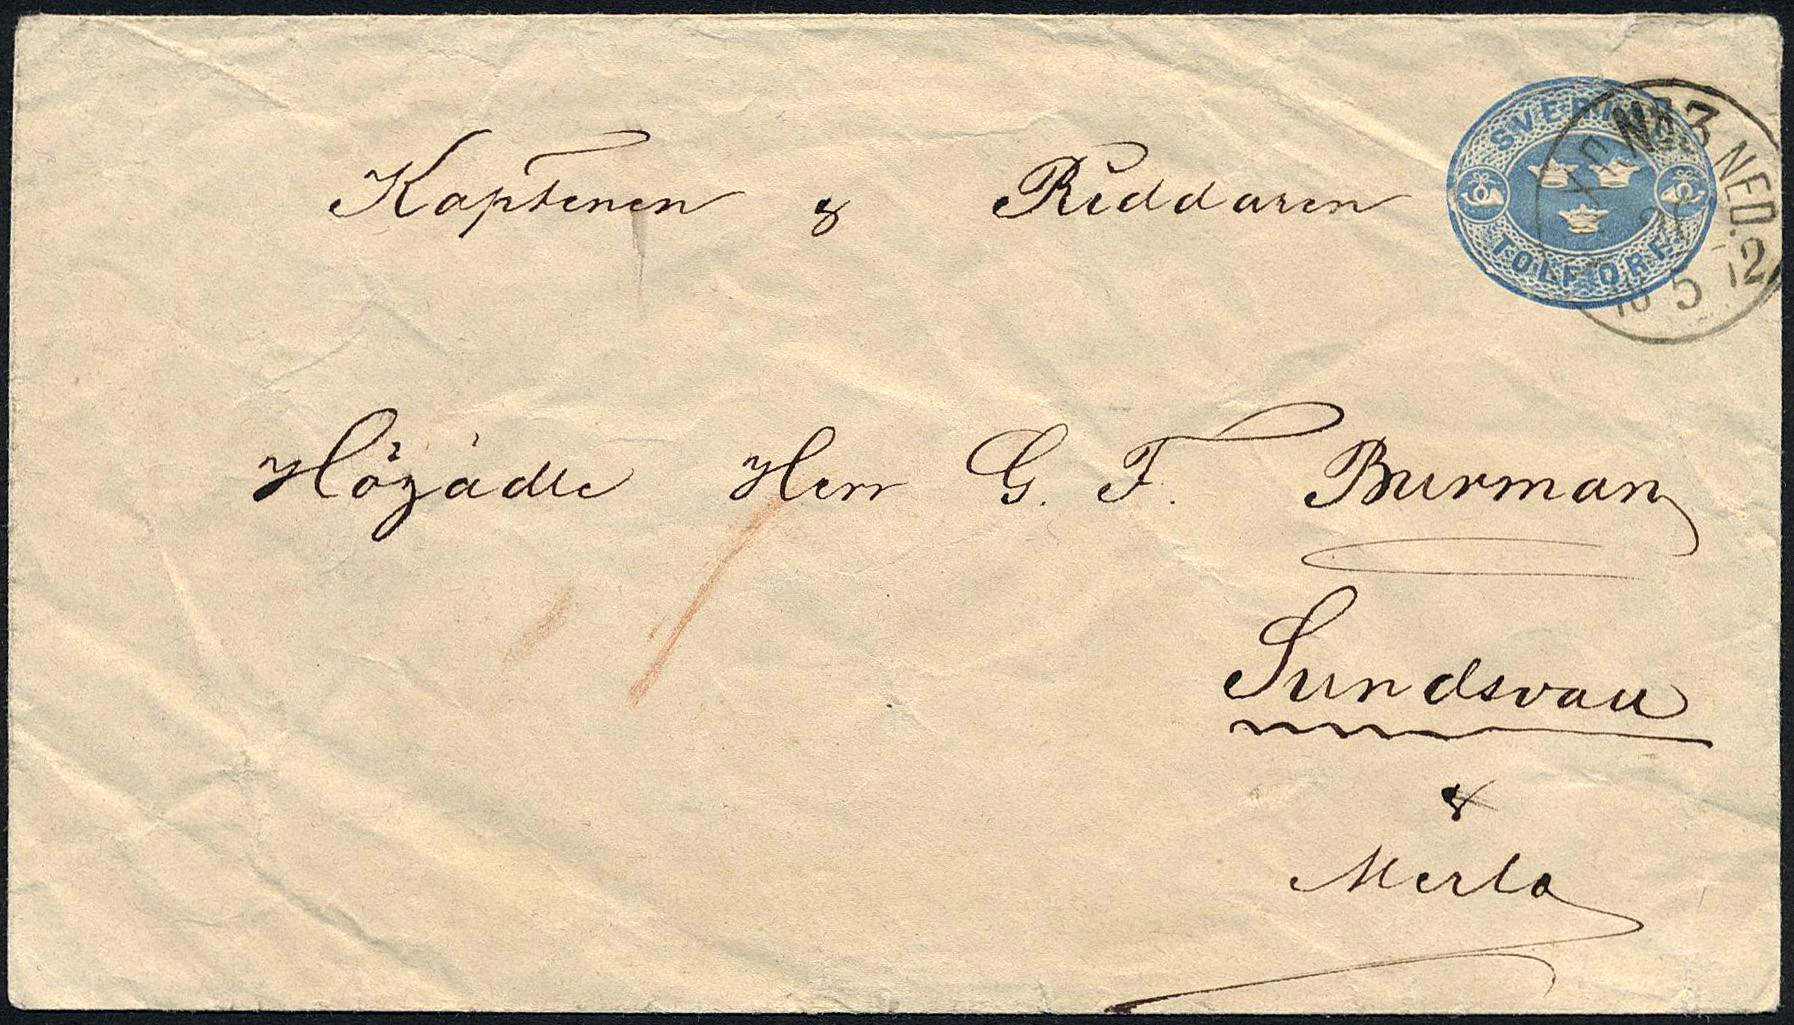 SVERIGE
TOLF ÖRE
PKXP Nr 3 NED.
21
5
Kaptenen & Riddaren
Högädle Herr G. F. Burman
Sundsvall
&
Merlo